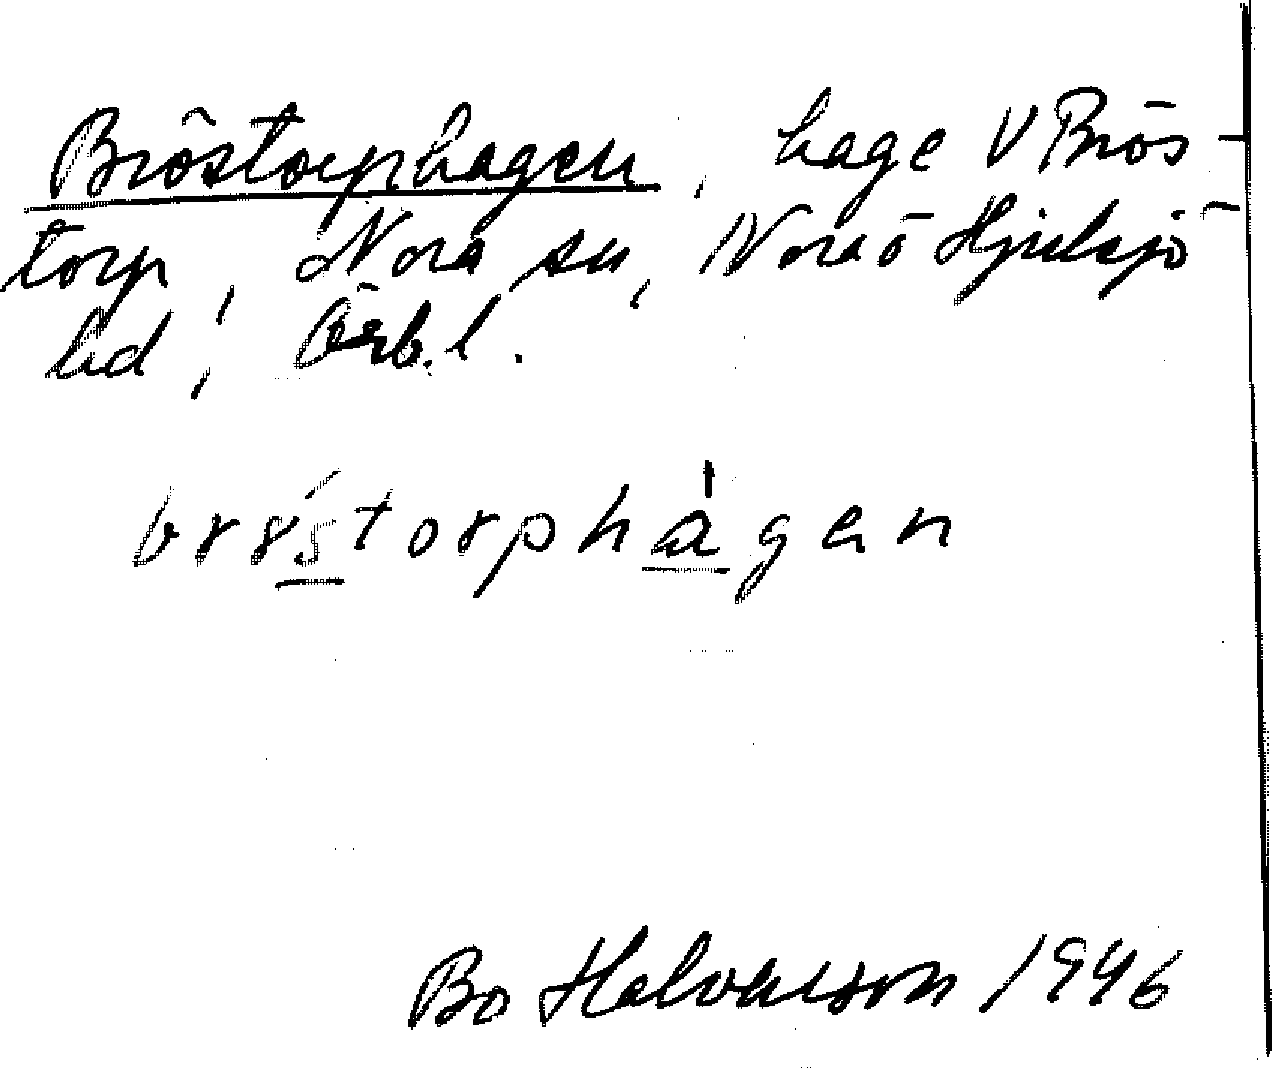 Bröstorphagen, hage V Brös-
torp, Nora sn, Nora ö Hjulsjö
bd, Örb.l.
brɤstorphagen
Bo Halvarson 1946